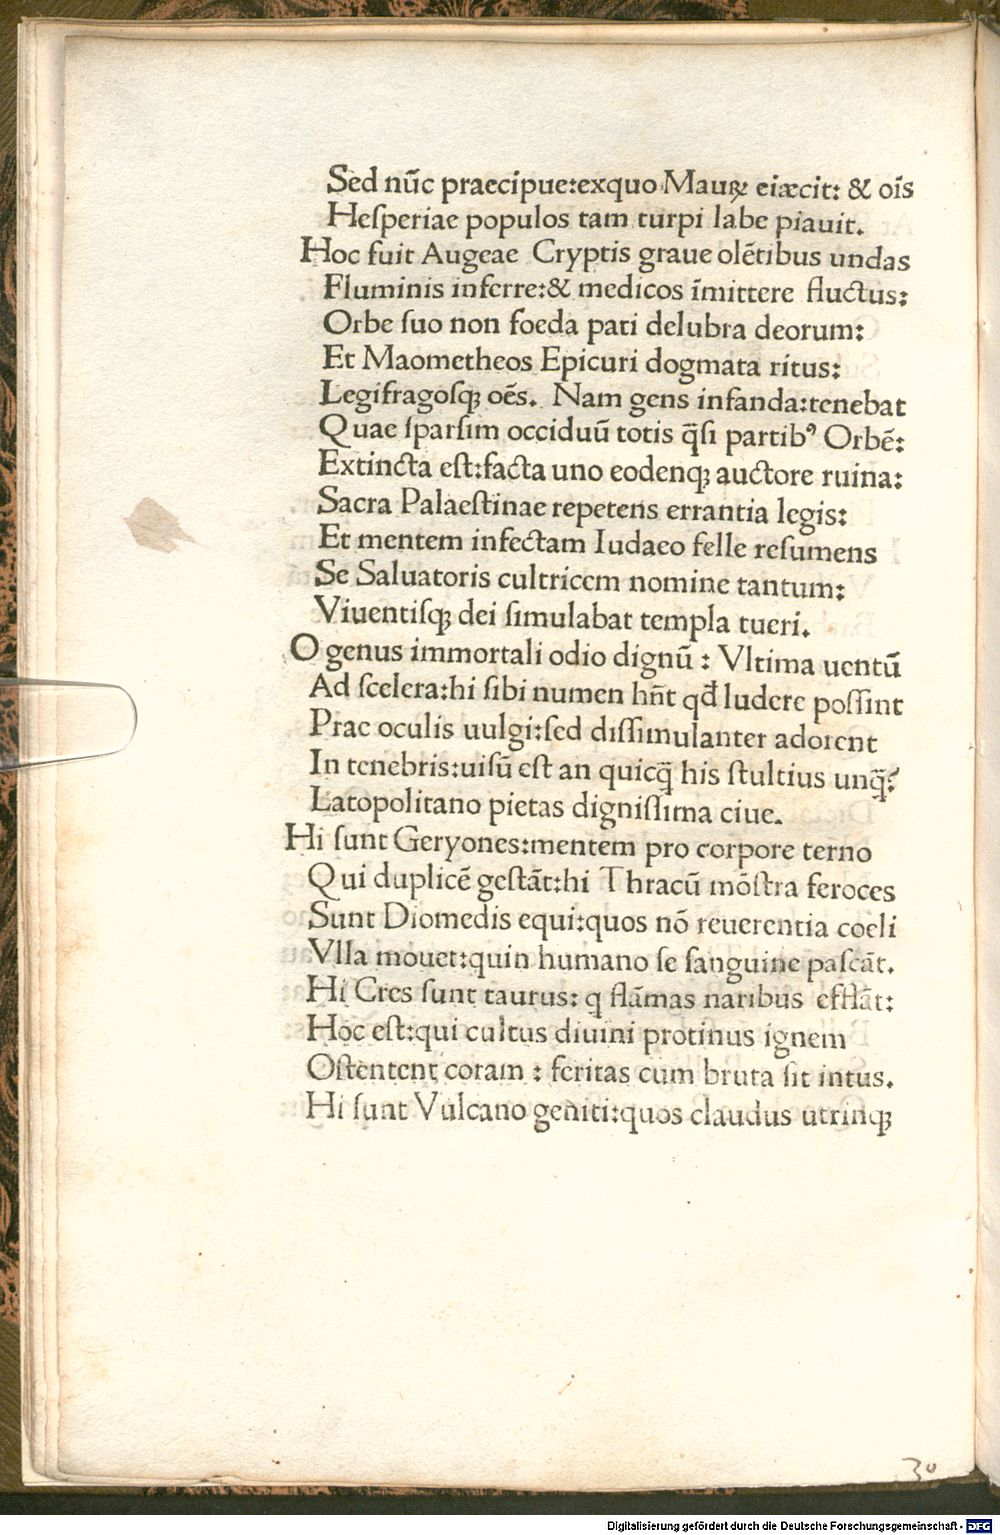 Sed nūc praecipue:exquo Mauꝝ eiæcit: & oīs
Hesperiae populos tam turpi labe piauit.
Hoc fuit Augeae Cryptis graue olētibus undas
Fluminis inferre:& medicos īmittere fluctus:
Orbe suo non foeda pati delubra deorum:
Et Maometheos Epicuri dogmata ritus:
Legifragosqꝫ oēs. Nam gens infanda:tenebat
Quae sparsim occiduū totis q̄si partibꝰ Orbē:
Extincta est:facta uno eodenqꝫ auctore ruina:
Sacra Palaestinae repetens errantia legis:
Et mentem infectam Iudaeo felle resumens
Se Saluatoris cultricem nomine tantum:
Viuentisqꝫ dei simulabat templa tueri.
O genus immortali odio dignū : Vltima uentū
Ad scelera:hi sibi numen hn̄t qđ ludere possint
Prae oculis uulgi:sed dissimulanter adorent
In tenebris:uisū est an quicq̄ his stultius unq̄?
Latopolitano pietas dignissima ciue.
Hi sunt Geryones:mentem pro corpore terno
Qui duplicē gestāt:hi Thracū mōstra feroces
Sunt Diomedis equi:quos nō reuerentia coeli
Vlla mouet:quin humano se sanguine pascāt.
Hi Cres sunt taurus: q flāmas naribus efflāt:
Hoc est:qui cultus diuini protinus ignem
Ostentent coram : feritas cum bruta sit intus.
Hi sunt Vulcano geniti:quos claudus utrinqꝫ
30
Digitalisierung gefördert durch die Deutsche Forschungsgemeinschaft - DFG